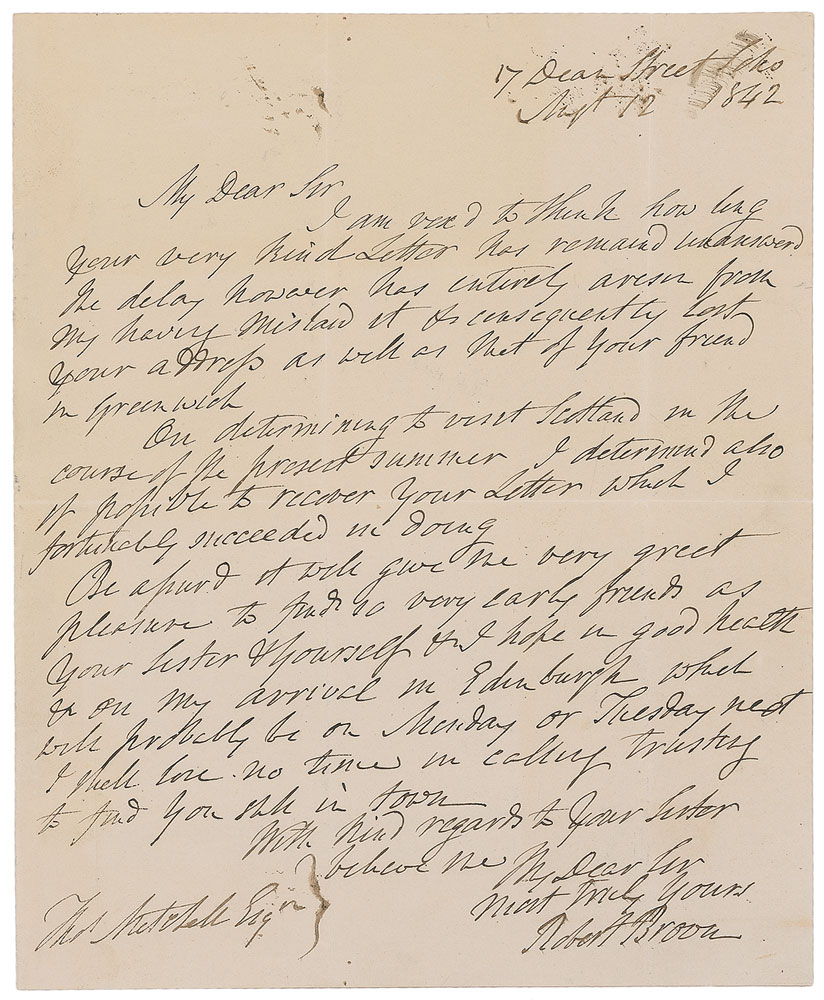 17 Dean Street Soho
Augt 12 1842
My Dear Sir
I am vex'd to think how long
your very kind Letter has remaind unanswerd
the delay however has entirely arisen from
my having mislaid it & consequently lost
your address as well as that of your friend
in Greenwich
On determining to visit Scotland in the
course of the present summer I determind also
if possible to recover your Letter which I
fortunately succeeded in doing
Be assurd it will give me very great
pleasure to find so very early friends as
your Sister & Yourself & I hope in good health
& on my arrival in Edinburgh which
will probably be on Monday or Tuesday next
I shall lose no time in calling trusting
to find you still in town
With kind regards to your Sister
believe me My Dear Sir
most truly yours
Robert Brown
Thos Mitchell Esqre